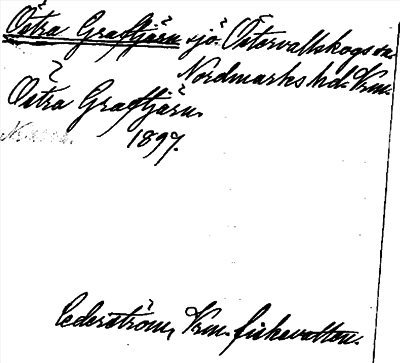 Östra Graftjärn sjö Östervallskogs sn
Nordmarks hd. Vrm.
Östra Graftjärn.
1897.
Cederström, Vrm. fiskevatten.